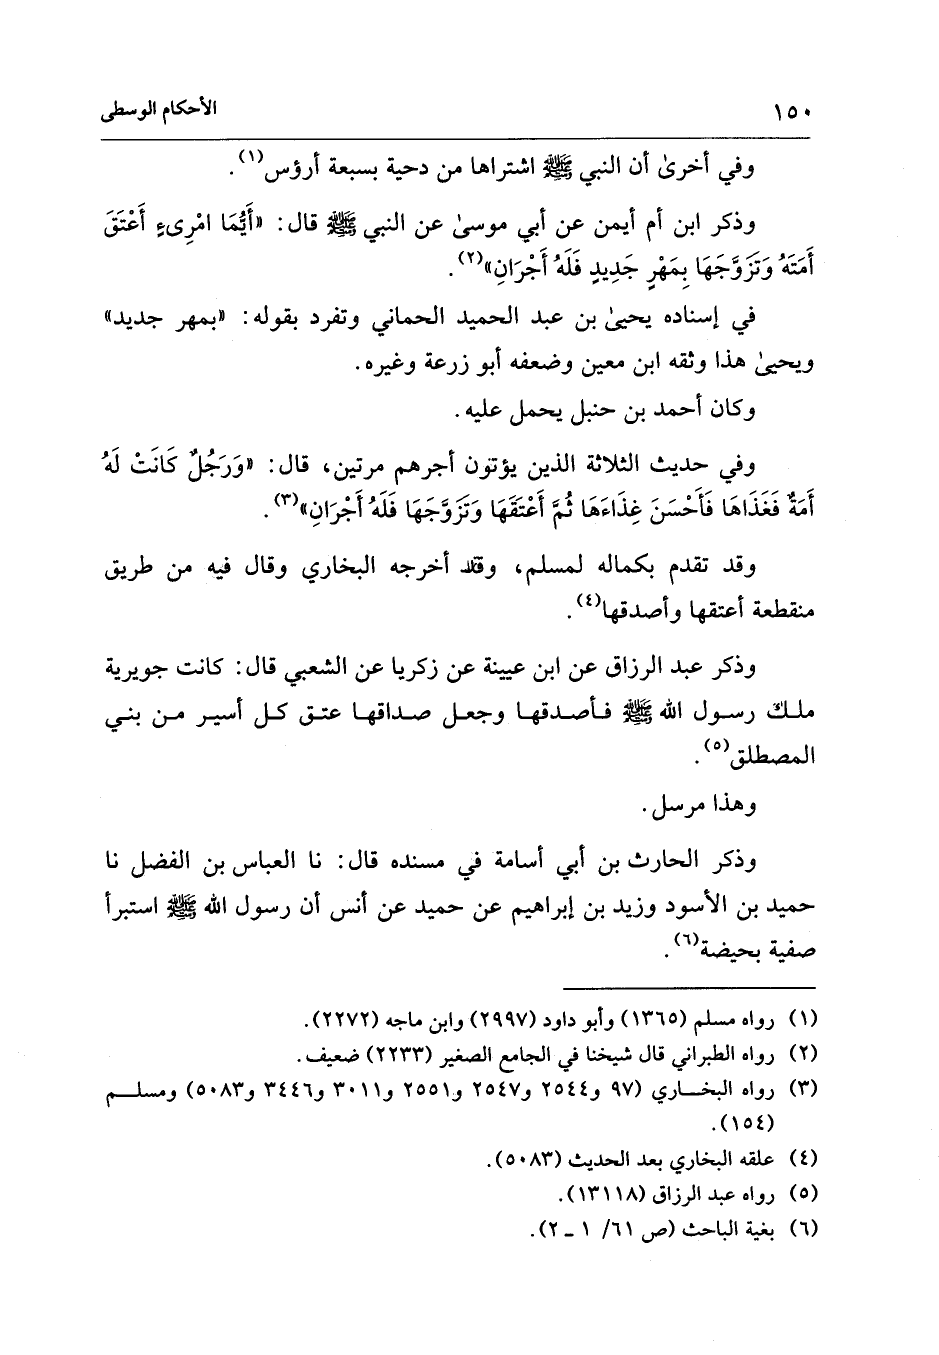 ١٥٠ الأحكام الوسطى
وفي أخرىٰ أن النبي ﷺ اشتراها من دحية بسبعة أرؤس(١).
وذكر ابن أم أيمن عن أبي موسىٰ عن النبي ﷺ قال: «أَيُّمَا امْرِىءٍ أَعْتَقَ
أَمَتَهُ وَتَزَوَّجَهَا بِمَهْرٍ جَدِيدٍ فَلَهُ أَجْرَانِ»(٢).
في إسناده يحيىٰ بن عبد الحميد الحماني وتفرد بقوله: «بمهر جديد»
ويحيىٰ هذا وثقه ابن معين وضعفه أبو زرعة وغيره.
وكان أحمد بن حنبل يحمل عليه.
وفي حديث الثلاثة الذين يؤتون أجرهم مرتين، قال: «وَرَجُلٌ كَانَتْ لَهُ
أَمَةٌ فَغَذَاهَا فَأَحْسَنَ غِذَاءَهَا ثُمَّ أَعْتَقَهَا وَتَزَوَّجَهَا فَلَهُ أَجْرَانِ»(٣).
وقد تقدم بكماله لمسلم، وقد أخرجه البخاري وقال فيه من طريق
منقطعة أعتقها وأصدقها(٤).
وذكر عبد الرزاق عن ابن عيينة عن زكريا عن الشعبي قال: كانت جويرية
ملك رسول الله ﷺ فأصدقها وجعل صداقها عتق كل أسير من بني
المصطلق(٥).
وهذا مرسل.
وذكر الحارث بن أبي أسامة في مسنده قال: نا العباس بن الفضل نا
حميد بن الأسود وزيد بن إبراهيم عن حميد عن أنس أن رسول الله ﷺ استبرأ
صفية بحيضة(٦).
(١) رواه مسلم (١٣٦٥) وأبو داود (٢٩٩٧) وابن ماجه (٢٢٧٢).
(٢) رواه الطبراني قال شيخنا في الجامع الصغير (٢٢٣٣) ضعيف.
(٣) رواه البخاري (٩٧ و٢٥٤٤ و٢٥٤٧ و٢٥٥١ و٣٠١١ و٣٤٤٦ و٥٠٨٣) ومسلم
(١٥٤).
(٤) علقه البخاري بعد الحديث (٥٠٨٣).
(٥) رواه عبد الرزاق (١٣١١٨).
(٦) بغية الباحث (ص ٦١/ ١ ـ ٢).